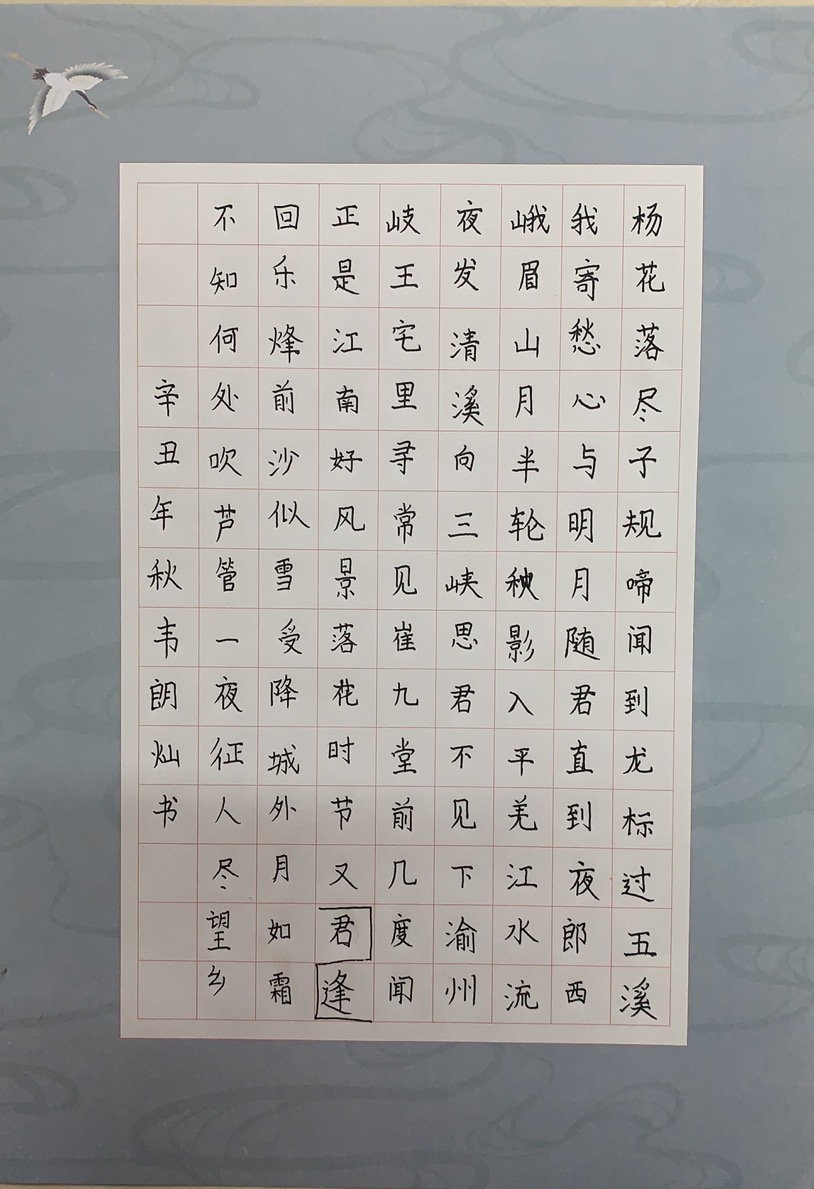 杨花落尽子规啼闻到龙标过五溪
我寄愁心与明月随君直到夜郎西
峨眉山月半轮秧影入平羌江水流
夜发清溪向三峡思君不见下渝州
岐王宅里寻常见崔九堂前几度闻
正是江南好风景落花时节又君逢
回乐烽前沙似雪受降城外月如霜
不知何处吹芦管一夜征人尽望乡
辛丑年秋韦朗灿书